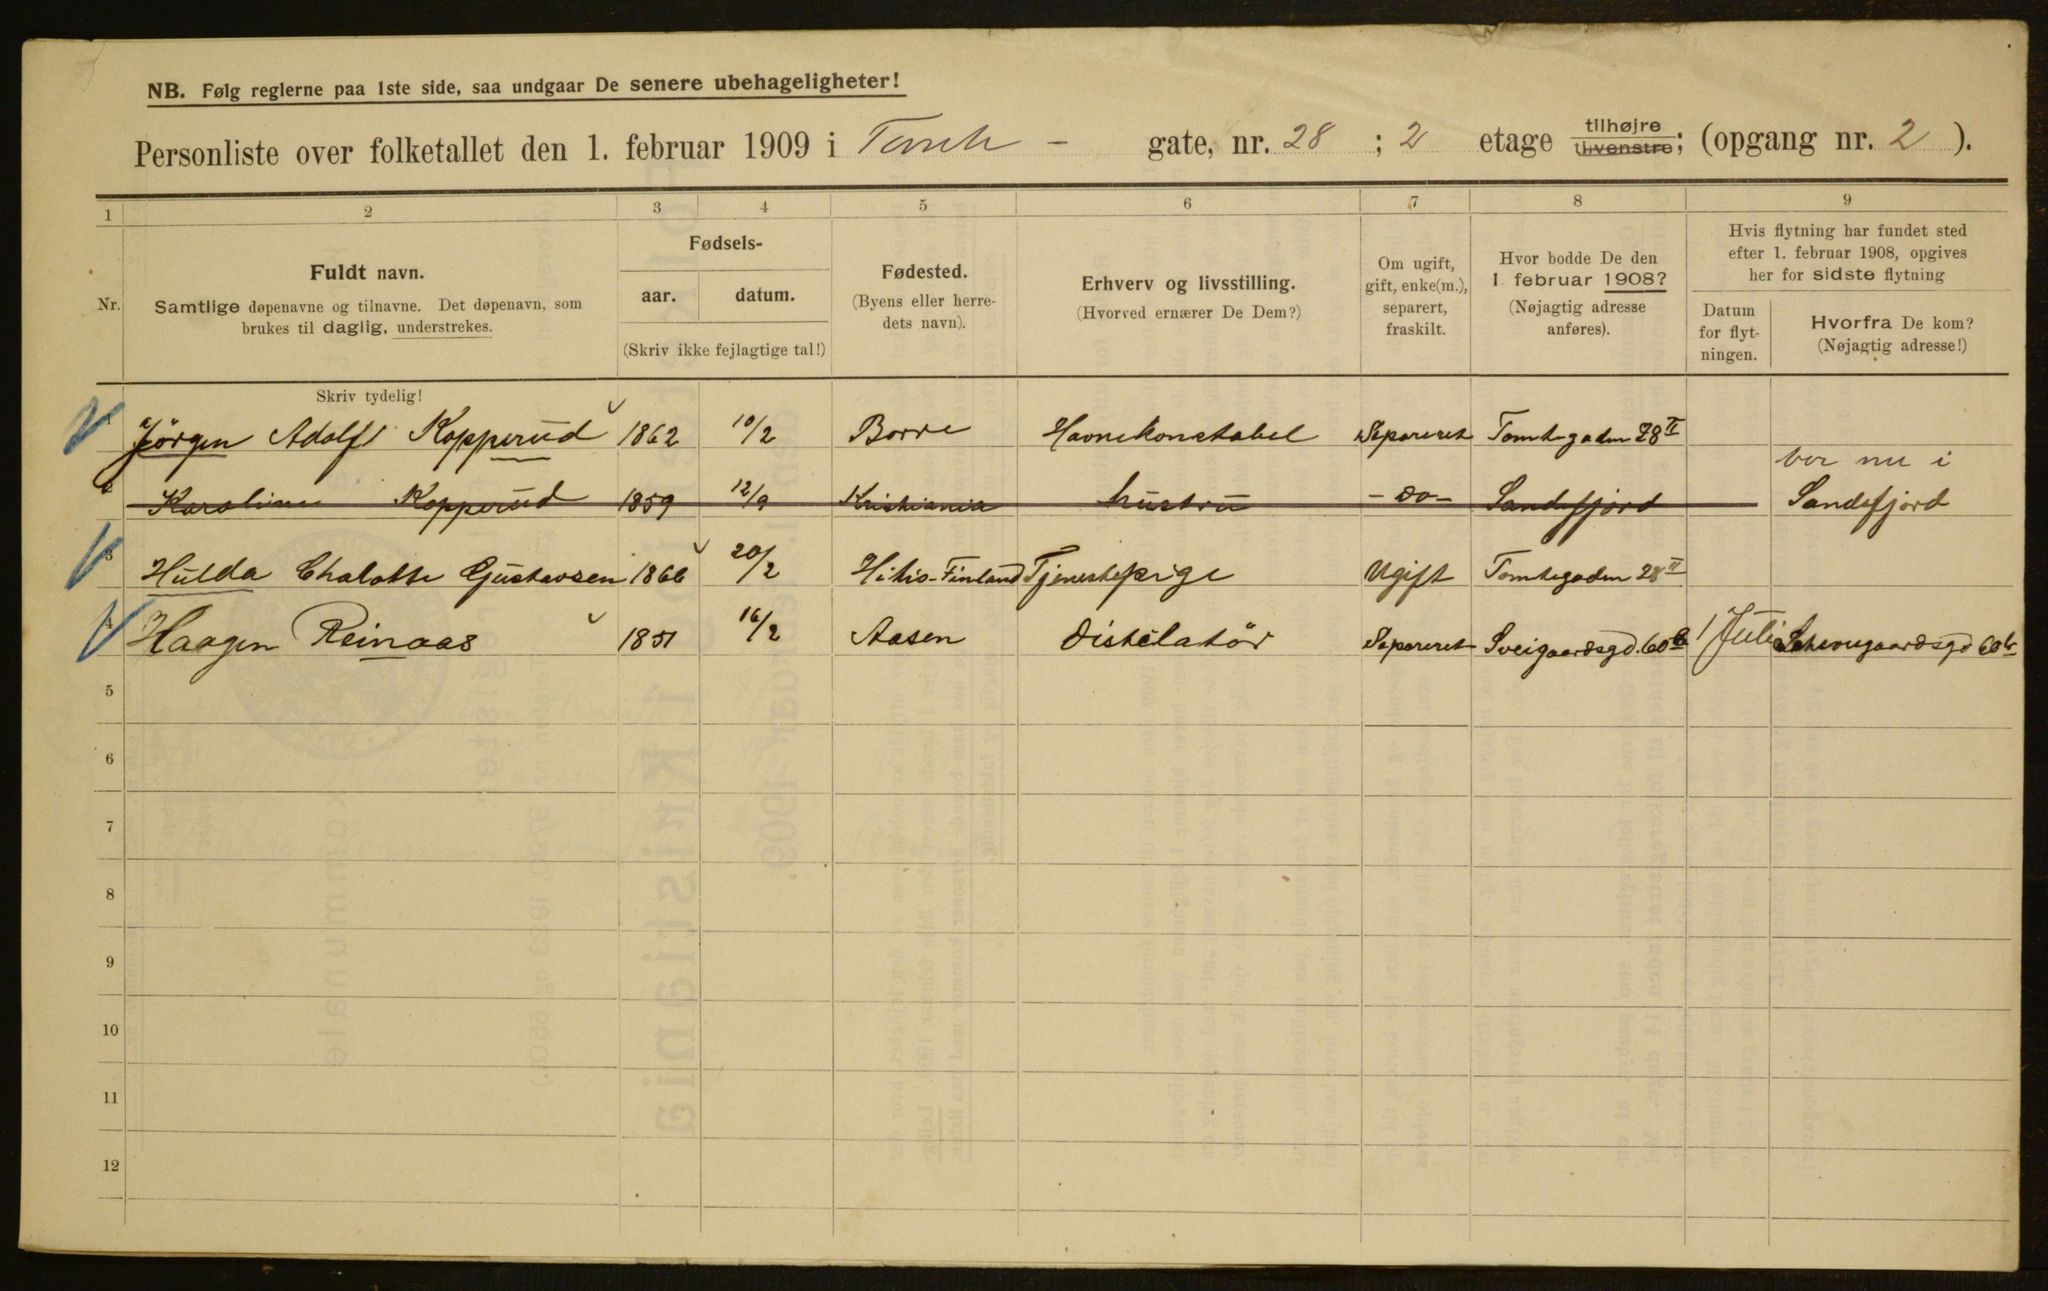 NB. Følg reglerne paa 1ste side, saa undgaar De senere ubehageligheter!
Personliste over folketallet den 1. februar 1909 i Tomte - gate, nr. 28 ; 2 etage tilhøjre tilvenstre; (opgang nr. 2 ).
1 2 3 4 5 6 7 8 9
Nr.
Fuldt navn.
Samtlige døpenavne og tilnavne. Det døpenavn, som
brukes til daglig, understrekes.
Fødsels-
aar. datum.
(Skriv ikke fejlagtige tal!)
Fødested.
(Byens eller herre-
dets navn).
Erhverv og livsstilling.
(Hvorved ernærer De Dem?)
Om ugift,
gift, enke(m.),
separert,
fraskilt.
Hvor bodde De den
1 februar 1908?
(Nøjagtig adresse
anføres).
Hvis flytning har fundet sted
efter 1. februar 1908, opgives
her for sidste flytning
Datum
for flyt-
ningen.
Hvorfra De kom?
(Nøjagtig adresse!)
Skriv tydelig!
1 Jørgen Adolf Kopperud 1862 10/2 Borre Havnekonstabel Separeret Tomtegaden 28 II
bor nu i
2 Karoline Kopperud 1859 12/9 Kristiania hustru - do - Sandefjord Sandefjord
3 Hulda Chalotte Gustavsen 1866 20/2 Hitis-Finland Tjenestepige Ugift Tomtegaden 28 II
4 Haagen Reinaas 1851 16/2 Aasen Distelatör Separeret Sveigaardsgd. 60 b 1/Juli Schweigaardsgd 60 b
5
6
7
8
9
10
11
12